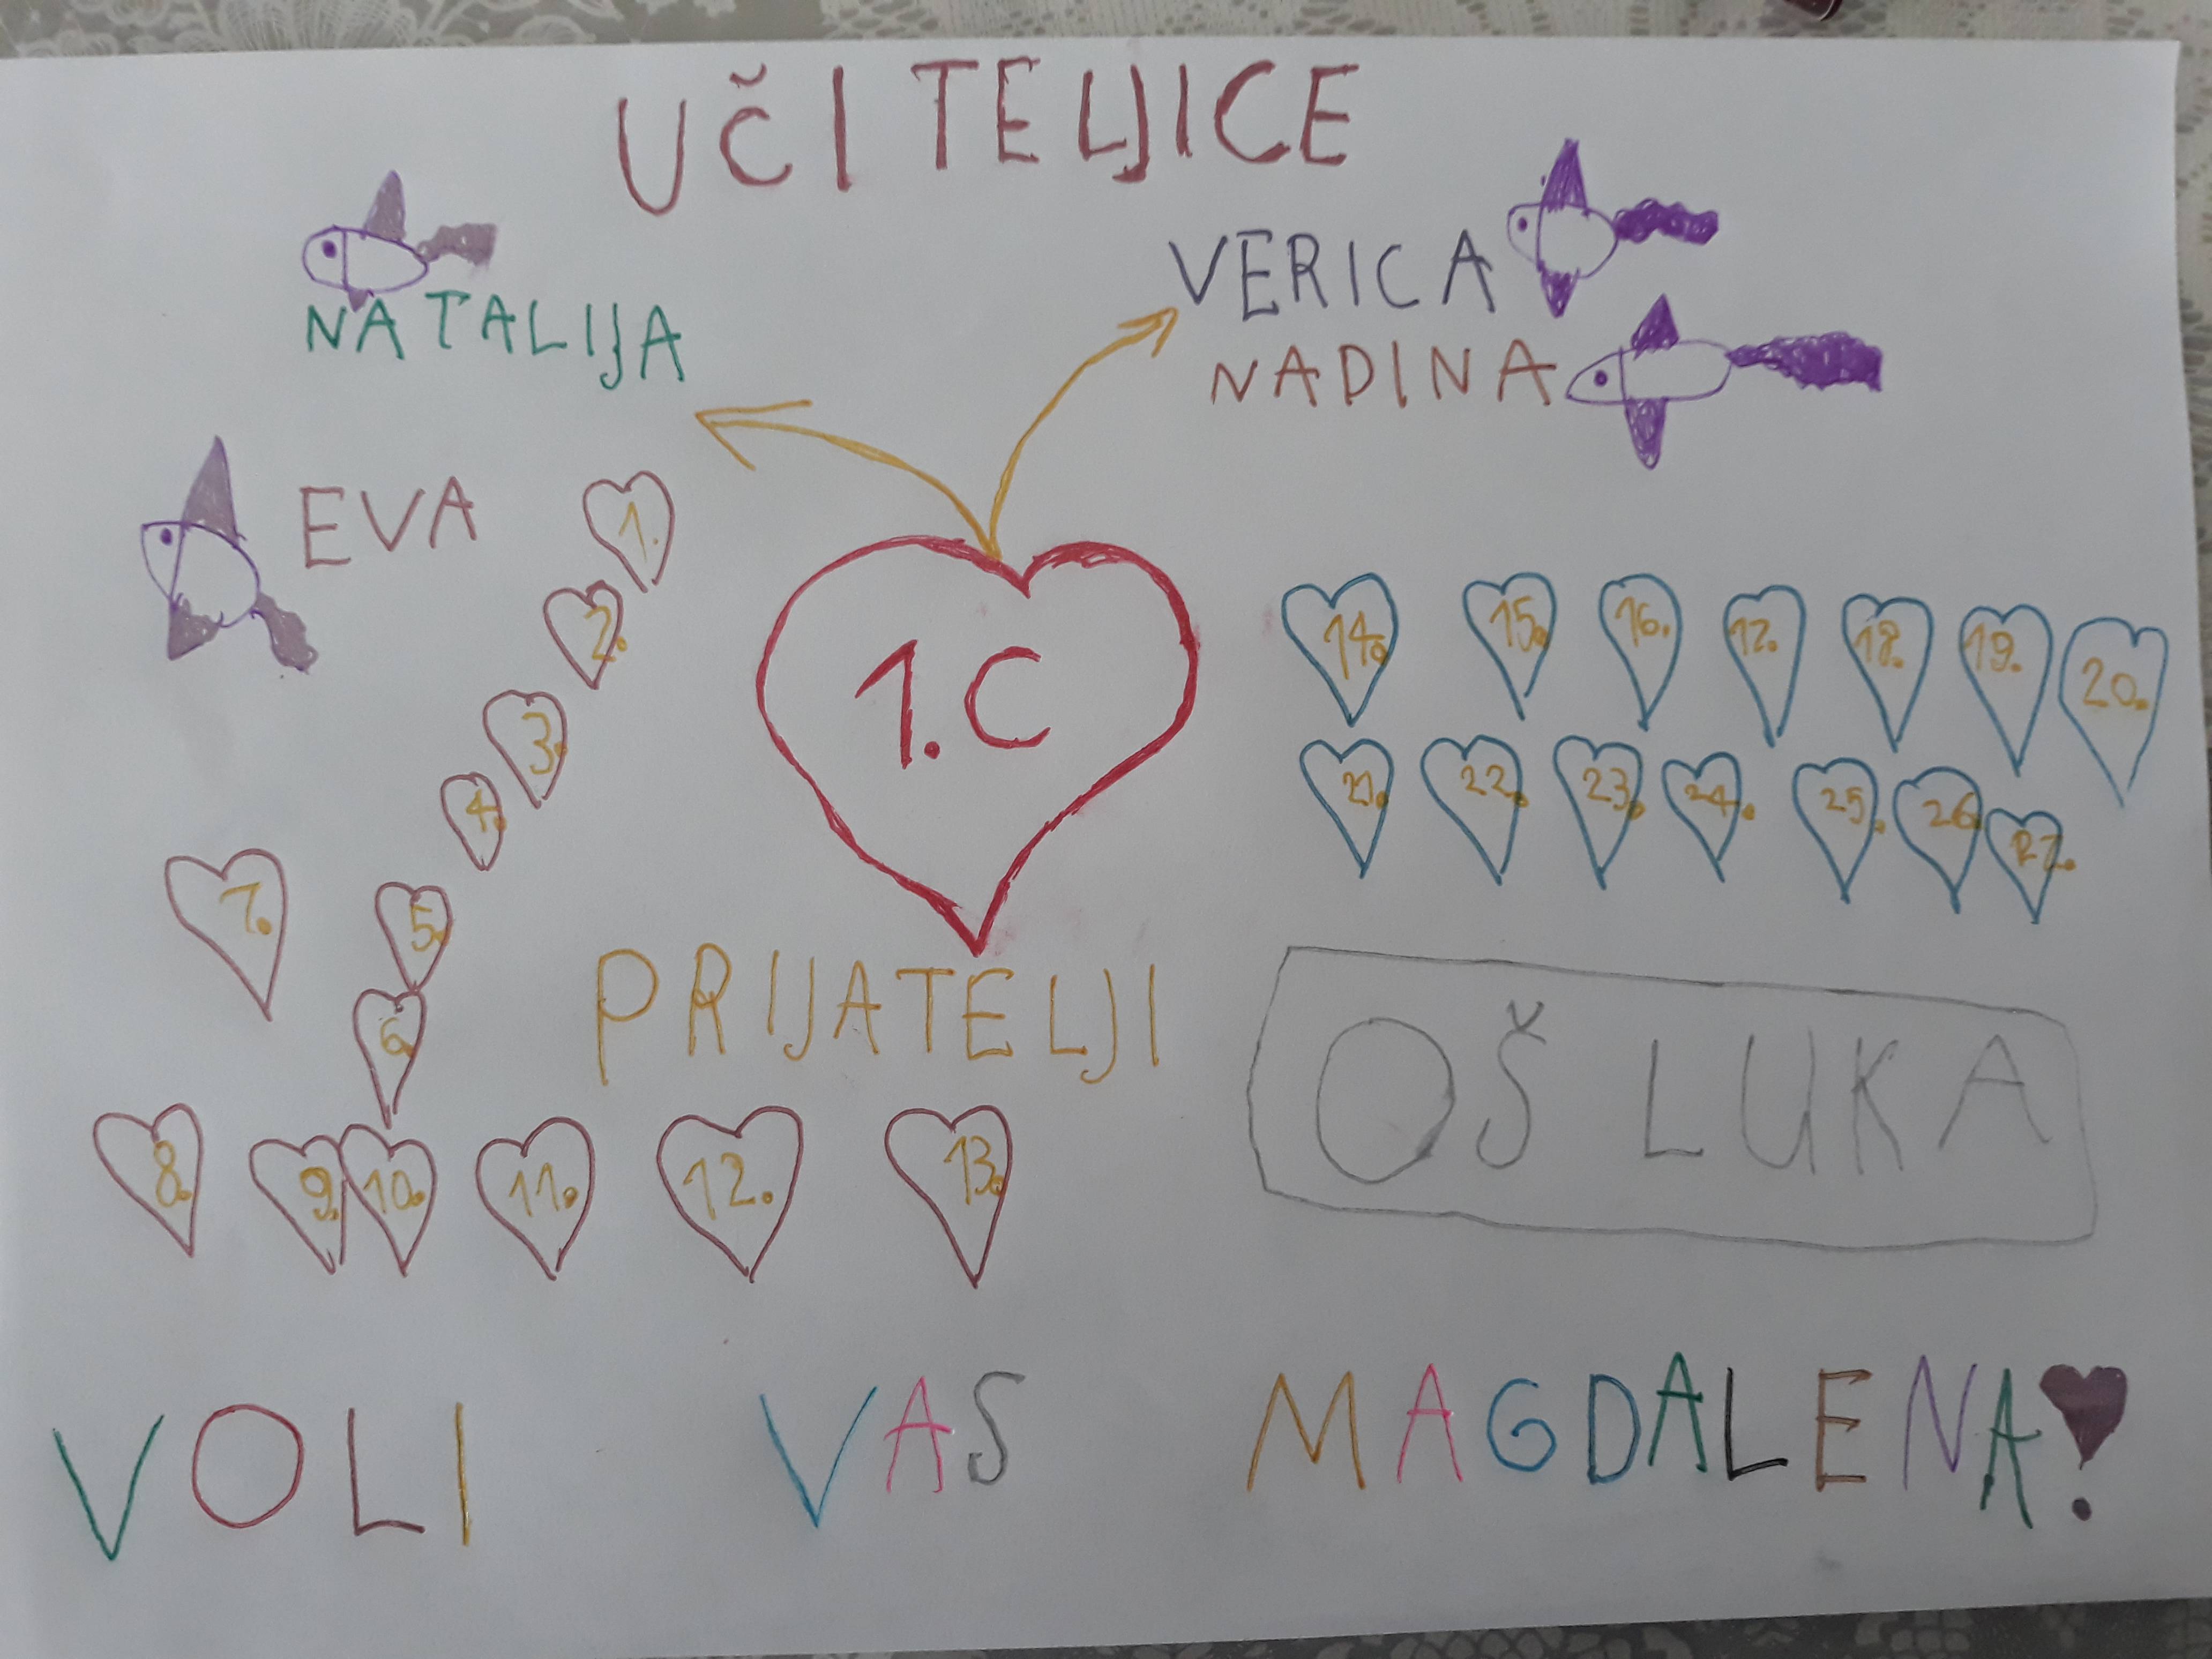 UČITELJICE
NATALIJA
VERICA
NADINA
EVA
1.
2.
3.
4.
5.
6.
7.
8.
9.
10.
11.
12.
13.
1.C
14.
15.
16.
17.
18.
19.
20.
21.
22.
23.
24.
25.
26.
27.
PRIJATELJI
OŠ LUKA
VOLI VAS MAGDALENA!